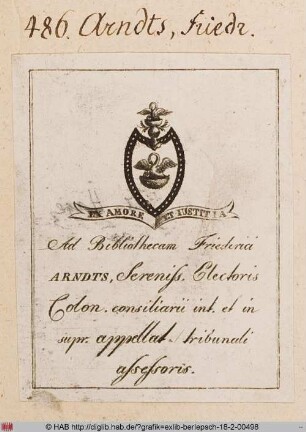 486. Arndts, Friedr.
EX AMORE ET IUSTITIA
Ad Bibliothecam Friederici
ARNDTS, Sereniss. Electoris
Colon. consiliarii int. et in
supr. appellat. tribunali
assessoris.
© HAB http://diglib.hab.de/?grafik=exlib-berlepsch-18-2-00498